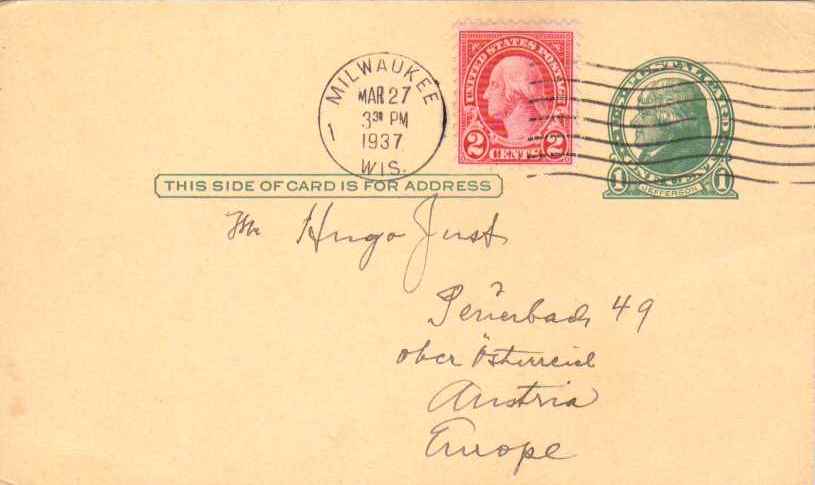 MILWAUKEE
MAR 27
3 30 PM
1937
WIS.
1
UNITED STATES POSTAGE
2 CENTS 2
1 JEFFERSON 1
THIS SIDE OF CARD IS FOR ADDRESS
Mr Hugo Just
49
ober Österreich
Austria
Europe